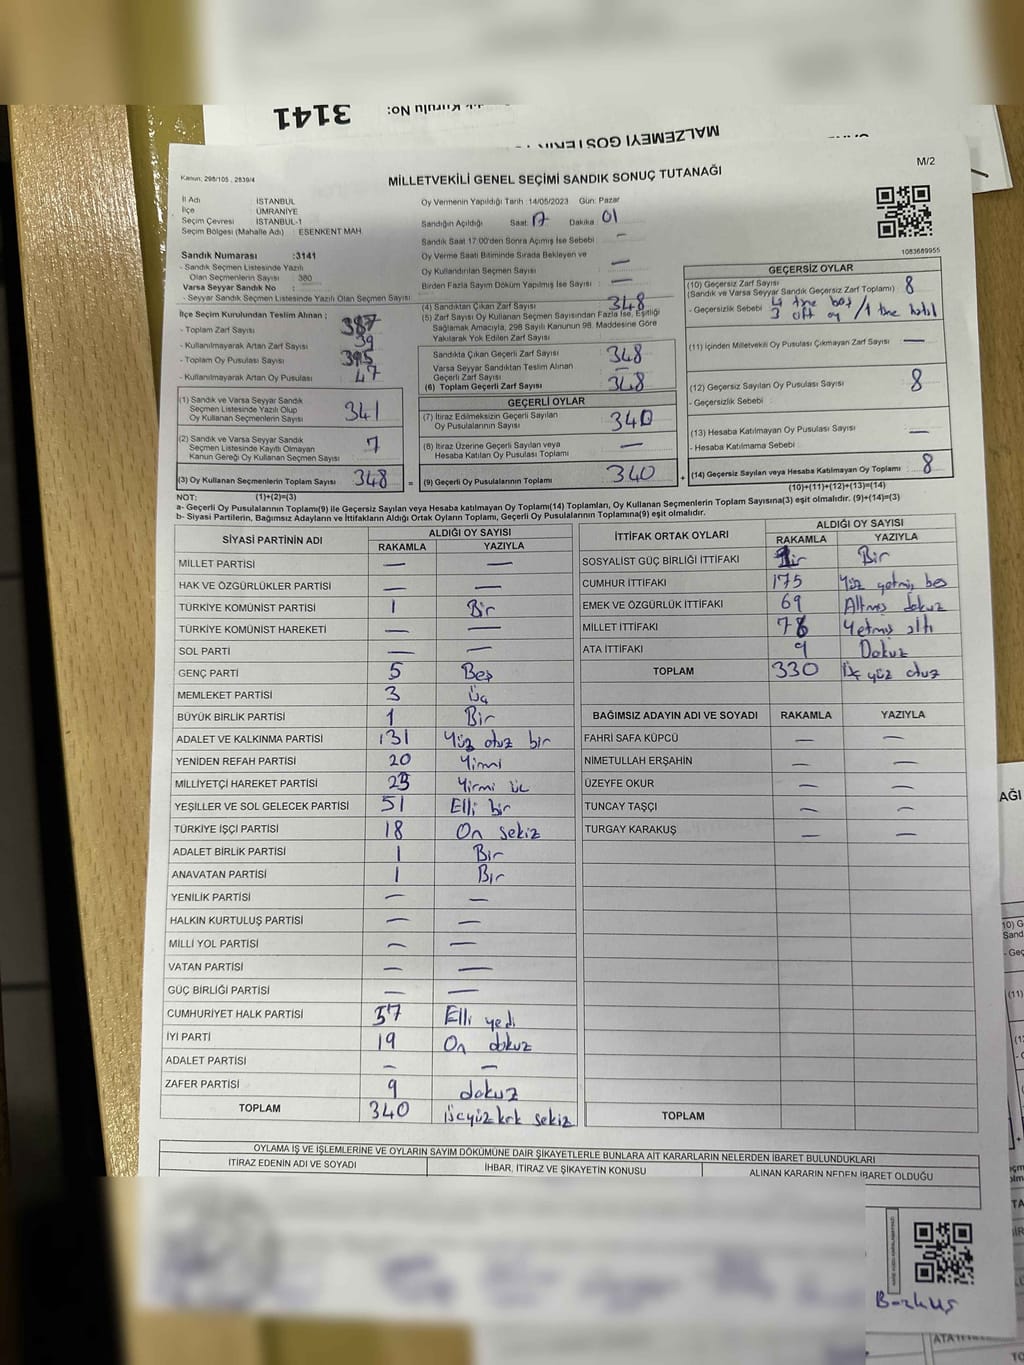 3141
MİLLETVEKİLİ GENEL SEÇİMİ SANDIK SONUÇ TUTANAĞI
M/2
Kanun, 298/105 , 2839/4
İl Adı İSTANBUL
İlçe ÜMRANİYE
Seçim Çevresi İSTANBUL-1
Seçim Bölgesi (Mahalle Adı) : ESENKENT MAH.
Sandık Numarası :3141
- Sandık Seçmen Listesinde Yazılı
Olan Seçmenlerin Sayısı : 380
Varsa Seyyar Sandık No :
- Seyyar Sandık Seçmen Listesinde Yazılı Olan Seçmen Sayısı
İlçe Seçim Kurulundan Teslim Alınan ;
- Toplam Zarf Sayısı 387
- Kullanılmayarak Artan Zarf Sayısı 39
- Toplam Oy Pusulası Sayısı 395
- Kullanılmayarak Artan Oy Pusulası 47
(1) Sandık ve Varsa Seyyar Sandık
Seçmen Listesinde Yazılı Olup
Oy Kullanan Seçmenlerin Sayısı 341
(2) Sandık ve Varsa Seyyar Sandık
Seçmen Listesinde Kayıtlı Olmayan
Kanun Gereği Oy Kullanan Seçmen Sayısı 7
(3) Oy Kullanan Seçmenlerin Toplam Sayısı 348 =
Oy Vermenin Yapıldığı Tarih : 14/05/2023 Gün: Pazar
Sandığın Açıldığı Saat: 17 Dakika: 01
Sandık Saat 17:00'den Sonra Açımış İse Sebebi —
Oy Verme Saati Bitiminde Sırada Bekleyen ve
Oy Kullandırılan Seçmen Sayısı —
Birden Fazla Sayım Döküm Yapılmış İse Sayısı —
(4) Sandıktan Çıkan Zarf Sayısı 348
(5) Zarf Sayısı Oy Kullanan Seçmen Sayısından Fazla İse, Eşitliği
Sağlamak Amacıyla, 298 Sayılı Kanunun 98. Maddesine Göre
Yakılarak Yok Edilen Zarf Sayısı
Sandıkta Çıkan Geçerli Zarf Sayısı 348
Varsa Seyyar Sandıktan Teslim Alınan
Geçerli Zarf Sayısı —
(6) Toplam Geçerli Zarf Sayısı 348
GEÇERLİ OYLAR
(7) İtiraz Edilmeksizin Geçerli Sayılan
Oy Pusulalarının Sayısı 340
(8) İtiraz Üzerine Geçerli Sayılan veya
Hesaba Katılan Oy Pusulası Toplamı —
(9) Geçerli Oy Pusulalarının Toplamı 340 +
1083689955
GEÇERSİZ OYLAR
(10) Geçersiz Zarf Sayısı
(Sandık ve Varsa Seyyar Sandık Geçersiz Zarf Toplamı) 8
- Geçersizlik Sebebi : 4 tne boş
3 çift oy / 1 tne
(11) İçinden Milletvekili Oy Pusulası Çıkmayan Zarf Sayısı —
(12) Geçersiz Sayılan Oy Pusulası Sayısı 8
- Geçersizlik Sebebi :
(13) Hesaba Katılmayan Oy Pusulası Sayısı —
- Hesaba Katılmama Sebebi :
(14) Geçersiz Sayılan veya Hesaba Katılmayan Oy Toplamı : 8
(10)+(11)+(12)+(13)=(14)
NOT: (1)+(2)=(3)
a- Geçerli Oy Pusulaları Toplamı(9) ile Geçersiz Sayılan veya Hesaba katılmayan Oy Toplamı(14) Toplamları, Oy Kullanan Seçmenlerin Toplam Sayısına(3) eşit olmalıdır. (9)+(14)=(3)
b- Siyasi Partilerin, Bağımsız Adayların ve İttifakların Aldığı Ortak Oyların Toplamı, Geçerli Oy Pusulalarının Toplamına(9) eşit olmalıdır.
SİYASİ PARTİNİN ADI ALDIĞI OY SAYISI
RAKAMLA YAZIYLA
MİLLET PARTİSİ — —
HAK VE ÖZGÜRLÜKLER PARTİSİ — —
TÜRKİYE KOMÜNİST PARTİSİ 1 Bir
TÜRKİYE KOMÜNİST HAREKETİ — —
SOL PARTİ — —
GENÇ PARTİ 5 Beş
MEMLEKET PARTİSİ 3 Üç
BÜYÜK BİRLİK PARTİSİ 1 Bir
ADALET VE KALKINMA PARTİSİ 131 Yüz otuz bir
YENİDEN REFAH PARTİSİ 20 Yirmi
MİLLİYETÇİ HAREKET PARTİSİ 23 Yirmi üç
YEŞİLLER VE SOL GELECEK PARTİSİ 51 Elli bir
TÜRKİYE İŞÇİ PARTİSİ 18 On sekiz
ADALET BİRLİK PARTİSİ 1 Bir
ANAVATAN PARTİSİ 1 Bir
YENİLİK PARTİSİ — —
HALKIN KURTULUŞ PARTİSİ — —
MİLLİ YOL PARTİSİ — —
VATAN PARTİSİ — —
GÜÇ BİRLİĞİ PARTİSİ — —
CUMHURİYET HALK PARTİSİ 57 Elli yedi
İYİ PARTİ 19 On dokuz
ADALET PARTİSİ — —
ZAFER PARTİSİ 9 dokuz
TOPLAM 340 üçyüz kırk sekiz
İTTİFAK ORTAK OYLARI ALDIĞI OY SAYISI
RAKAMLA YAZIYLA
SOSYALİST GÜÇ BİRLİĞİ İTTİFAKI Bir
CUMHUR İTTİFAKI 175 Yüz yetmiş beş
EMEK VE ÖZGÜRLÜK İTTİFAKI 69 Altmış dokuz
MİLLET İTTİFAKI 76 Yetmiş altı
ATA İTTİFAKI 9 Dokuz
TOPLAM 330 Üç yüz otuz
BAĞIMSIZ ADAYIN ADI VE SOYADI RAKAMLA YAZIYLA
FAHRİ SAFA KÜPCÜ — —
NİMETULLAH ERŞAHİN — —
ÜZEYFE OKUR — —
TUNCAY TAŞÇI — —
TURGAY KARAKUŞ — —
TOPLAM
OYLAMA İŞ VE İŞLEMLERİNE VE OYLARIN SAYIM DÖKÜMÜNE DAİR ŞİKAYETLERLE BUNLARA AİT KARARLARIN NELERDEN İBARET BULUNDUKLARI
İTİRAZ EDENİN ADI VE SOYADI İHBAR, İTİRAZ VE ŞİKAYETİN KONUSU ALINAN KARARIN NEDEN İBARET OLDUĞU